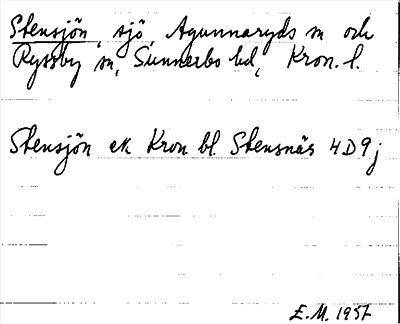 Stensjön, sjö, Agunnaryds sn och
Ryssby sn, Sunnerbo hd, Kron. l.
Stensjön ek Kron bl. Stensnäs 4D9j
E.M. 1957